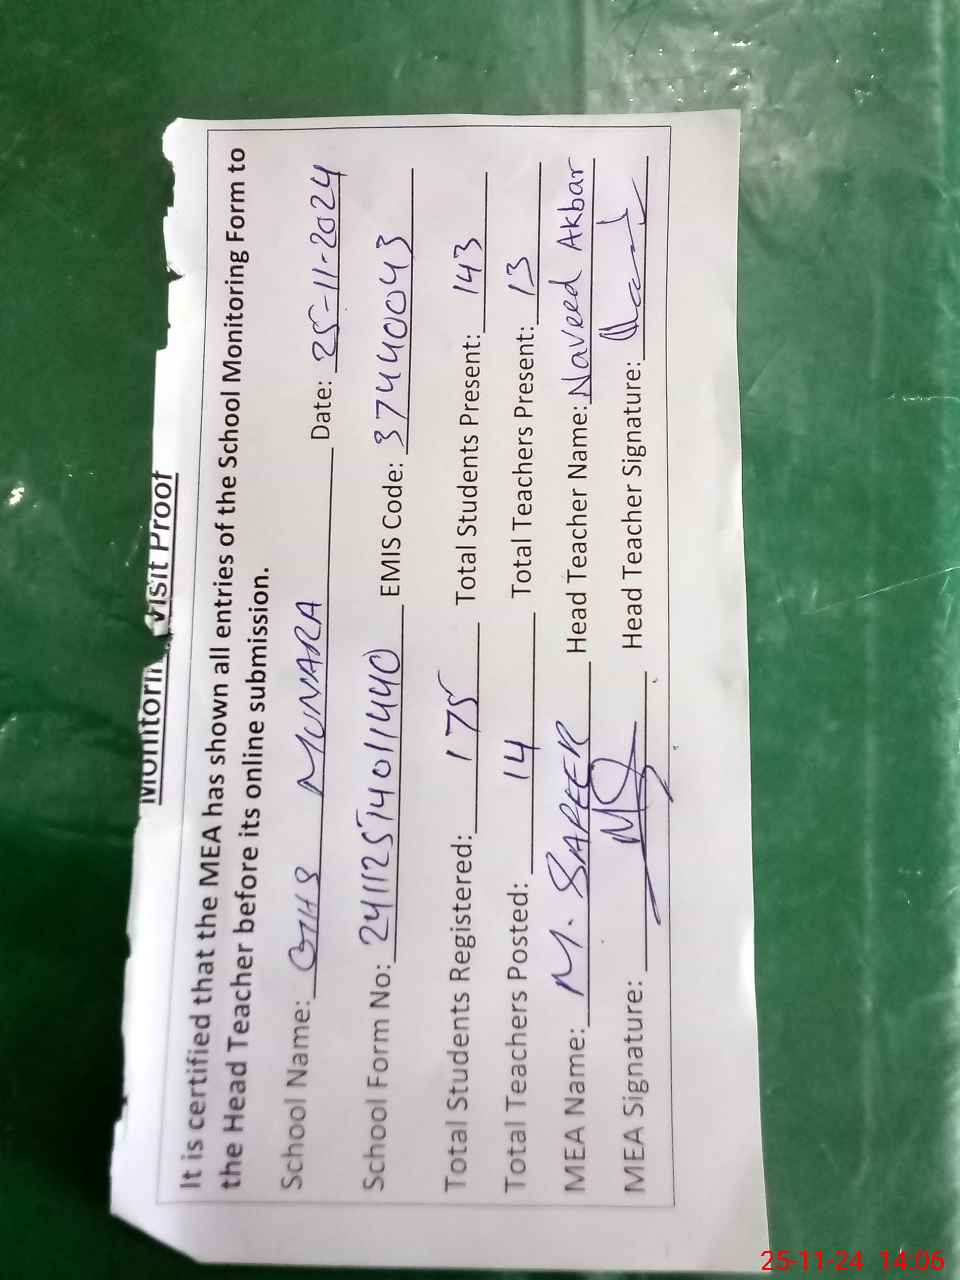 Monitoring Visit Proof
It is certified that the MEA has shown all entries of the School Monitoring Form to
the Head Teacher before its online submission.
School Name: GHS MUNARA Date: 25-11-2024
School Form No: 24112514011440 EMIS Code: 37440043
Total Students Registered: 175 Total Students Present: 143
Total Teachers Posted: 14 Total Teachers Present: 13
MEA Name: M. SAFEER Head Teacher Name: Naveed Akbar
MEA Signature: Head Teacher Signature:
25-11-24 14:06